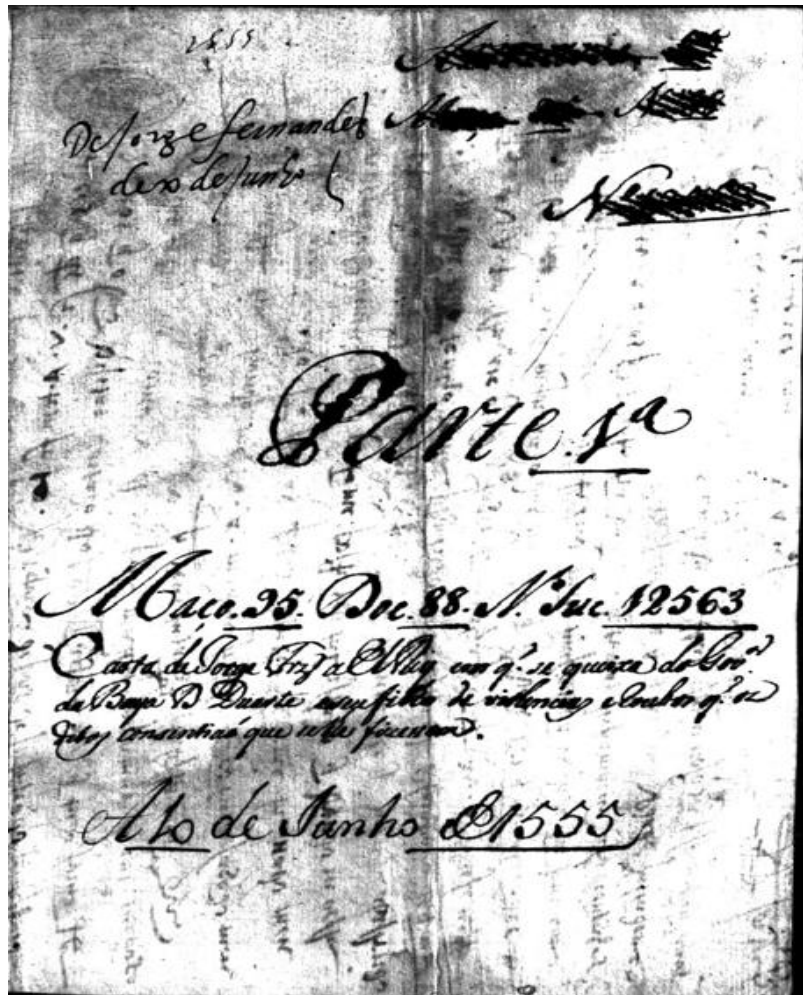 1555
De Jorge fernandez
de x de Junho
Parte. 1ª
Maço. 95. Doc. 88. N.º Suc. 12563
Carta de Jorge Frz a ElRey em q.' se queixa do Gov.ºʳ
da Baya D Duarte e seu filho de violencias e roubos q.' os
ditos consentiaõ que se lhe fizessem.
A 10 de Junho D 1555